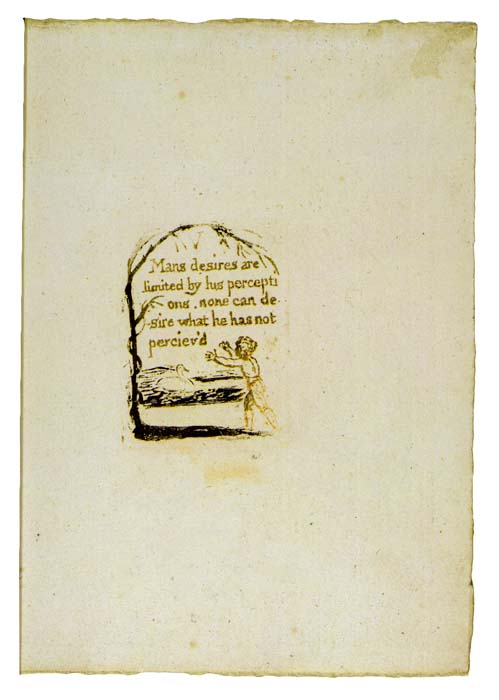 IV
Mans desires are
limited by his percepti
ons. none can de-
-sire what he has not
perciev'd